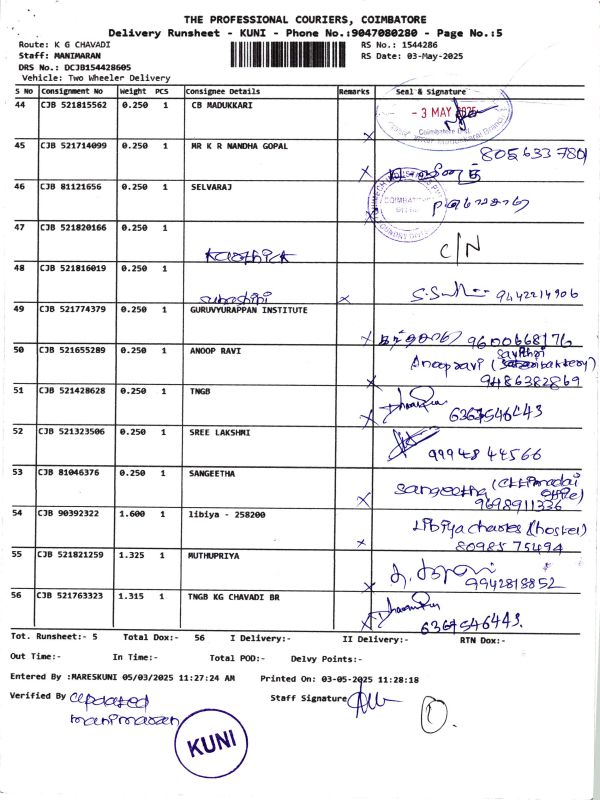 THE PROFESSIONAL COURIERS, COIMBATORE
Delivery Runsheet - KUNI - Phone No.:9047080280 - Page No.:5
Route: K G CHAVADI RS No.: 1544286
Staff: MANIMARAN RS Date: 03-May-2025
DRS No.: DCJB154428605
Vehicle: Two Wheeler Delivery
S No Consignment No Weight PCS Consignee Details Remarks Seal & Signature
44 CJB 521815562 0.250 1 CB MADUKKARI
- 3 MAY 2025
Coimbatore
45 CJB 521714099 0.250 1 MR K R NANDHA GOPAL 8056337801
X
46 CJB 81121656 0.250 1 SELVARAJ
COIMBATORE
47 CJB 521820166 0.250 1 C/N
Karthick
48 CJB 521816019 0.250 1
X 9442214906
49 CJB 521774379 0.250 1 GURUVYURAPPAN INSTITUTE
X 9600668176
50 CJB 521655289 0.250 1 ANOOP RAVI Anoopravi (
bakkery)
X 9486382869
51 CJB 521428628 0.250 1 TNGB
X 6367546443
52 CJB 521323506 0.250 1 SREE LAKSHMI
9994844566
53 CJB 81046376 0.250 1 SANGEETHA
X Sangeetha office)
9698911336
54 CJB 90392322 1.600 1 libiya - 258200 Libiya (hostel)
X 8098575494
55 CJB 521821259 1.325 1 MUTHUPRIYA
X 9942818852
56 CJB 521763323 1.315 1 TNGB KG CHAVADI BR
X 6367546443.
Tot. Runsheet:- 5 Total Dox:- 56 I Delivery:- II Delivery:- RTN Dox:-
Out Time:- In Time:- Total POD:- Delvy Points:-
Entered By :MARESKUNI 05/03/2025 11:27:24 AM Printed On: 03-05-2025 11:28:18
Verified By Updated Staff Signature
Manimaran
KUNI